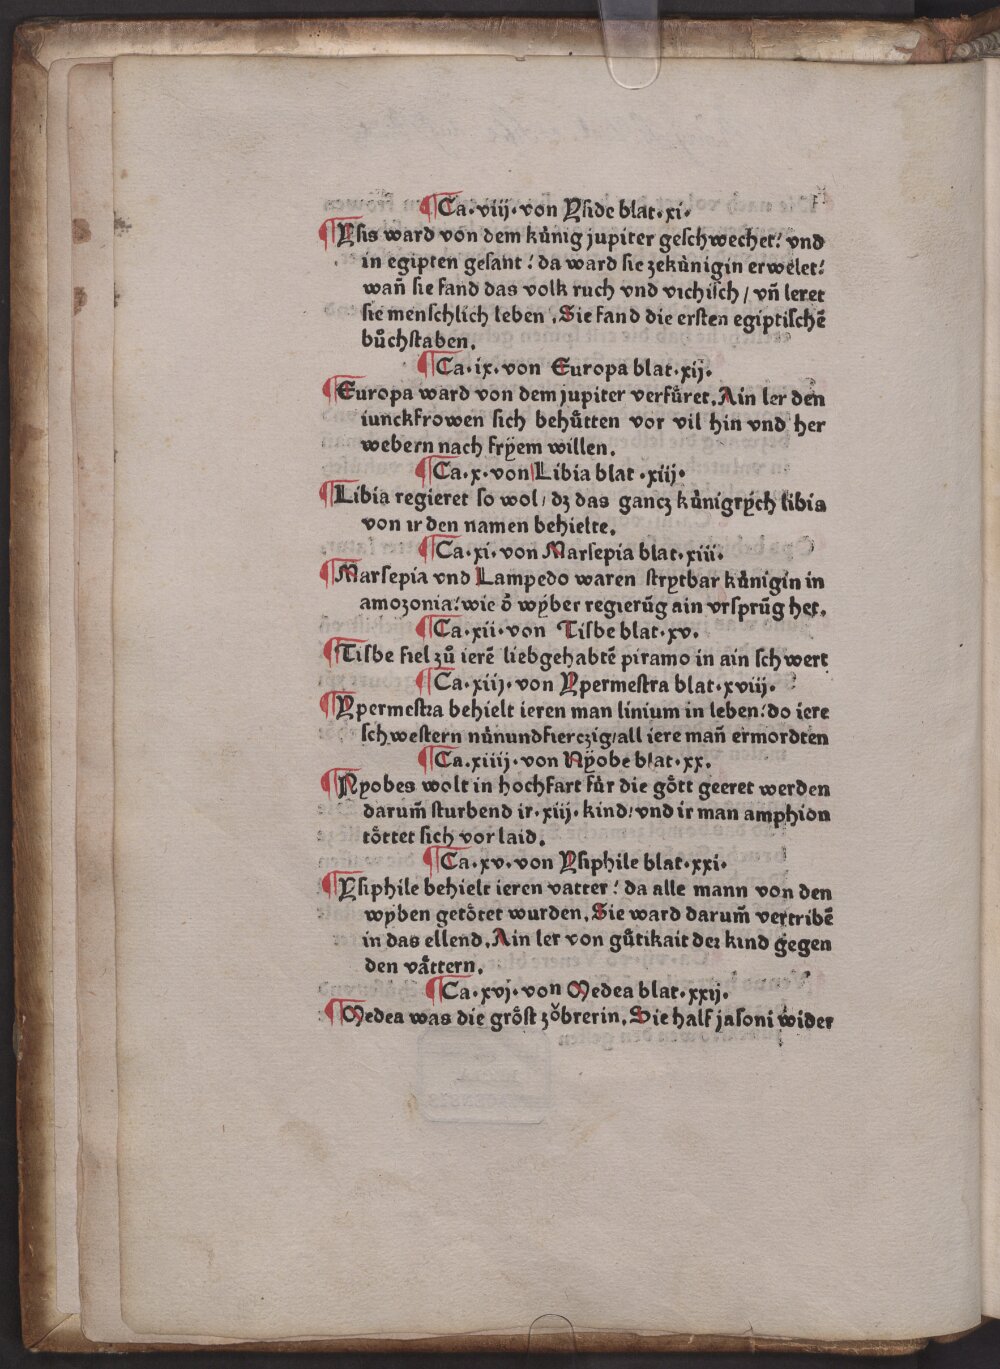 ¶Ca·viij·von Yside blat·xi·
¶Ysis ward von dem kůnig jupiter geschwechet! vnd
in egipten gesant! da ward sie zekůnigin erwelet!
wan̄ sie fand das volk ruch vnd vichisch / vn̄ leret
sie menschlich leben. Sie fand die ersten egiptischē
bůchstaben.
¶Ca·ix·von Europa blat·xij·
¶Europa ward von dem jupiter verfůret. Ain ler den
iunckfrowen sich behůtten vor vil hin vnd her
webern nach frÿem willen.
¶Ca·x·von Libia blat·xiij·
¶Libia regieret so wol / dz das gancz kůnigrÿch libia
von ir den namen behielte.
¶Ca·xi·von Marsepia blat·xiii·
¶Marsepia vnd Lampedo waren strytbar kůnigin in
amozonia! wie d̄ wÿber regierūg ain vrsprūg het.
¶Ca·xii·von Tisbe blat·xv.
¶Tisbe fiel zů ierē liebgehabtē piramo in ain schwert
¶Ca·xiij·von Ypermestra blat·xviij·
¶Ypermestra behielt ieren man linium in leben! do iere
schwestern nůnundfierczig/all iere man̄ ermordten
¶Ca.xiiij·von Nÿobe blat·xx.
¶Nyobes wolt in hochfart fůr die gött geeret werden
darum̄ sturbend ir·xiij·kind! vnd ir man amphion
töttet sich vor laid.
¶Ca·xv·von Ysiphile blat·xxi·
¶Ysiphile behielt ieren vatter! da alle mann von den
wyben getötet wurden. Sie ward darum̄ vertribē
in das ellend. Ain ler von gůtikait der kind gegen
den våttern.
¶Ca·xvj·von Medea blat·xxij.
¶Medea was die gröst zǒbrerin. Sie half jasoni wider